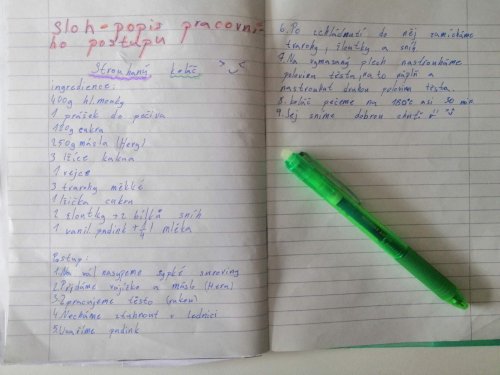 Sloh - popis pracovní-
ho postupu
Strouhaný koláč
ingredience:
400g hl. mouky
1 prášek do pečiva
120g cukru
250g másla (Hery)
3 lžíce kakaa
1 vejce
3 tvarohy měkké
1 lžička cukru
2 žloutky + 2 bílků sníh
1 vanil. pudink + 1/4 l mléka
Postup:
1. Na vál nasypeme sypké suroviny
2. Přidáme vajíčko a máslo (Hera)
3. Zpracujeme těsto (rukou)
4. Necháme ztuhnout v lednici
5. Uvaříme pudink
6. Po zchládnutí do něj zamícháme
tvarohy, žloutky a sníh
7. Na vymazaný plech nastrouháme
polovinu těsta, na to náplň a
nastrouhat druhou polovinu těsta.
8. koláč pečeme na 180°C asi 30 min
9. Sej sníme dobrou chuť